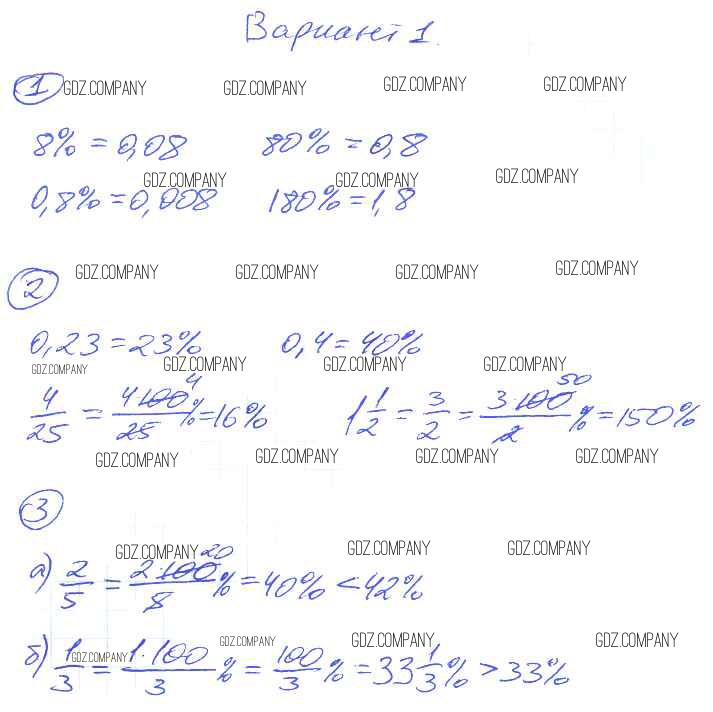 Вариант 1.
1 GDZ.COMPANY GDZ.COMPANY GDZ.COMPANY GDZ.COMPANY
8% = 0,08 80% = 0,8
GDZ.COMPANY GDZ.COMPANY GDZ.COMPANY
0,8% = 0,008 180% = 1,8
2 GDZ.COMPANY GDZ.COMPANY GDZ.COMPANY GDZ.COMPANY
0,23 = 23% 0,4 = 40%
GDZ.COMPANY GDZ.COMPANY GDZ.COMPANY GDZ.COMPANY
4/25 = 4·100 4/25 % = 16% 1 1/2 = 3/2 = 3·100 50/2 % = 150%
GDZ.COMPANY GDZ.COMPANY GDZ.COMPANY GDZ.COMPANY
3
GDZ.COMPANY GDZ.COMPANY GDZ.COMPANY
а) 2/5 = 2·100 20/8 % = 40% < 42%
GDZ.COMPANY GDZ.COMPANY GDZ.COMPANY GDZ.COMPANY
б) 1/3 = 1·100/3 % = 100/3 % = 33 1/3 % > 33%